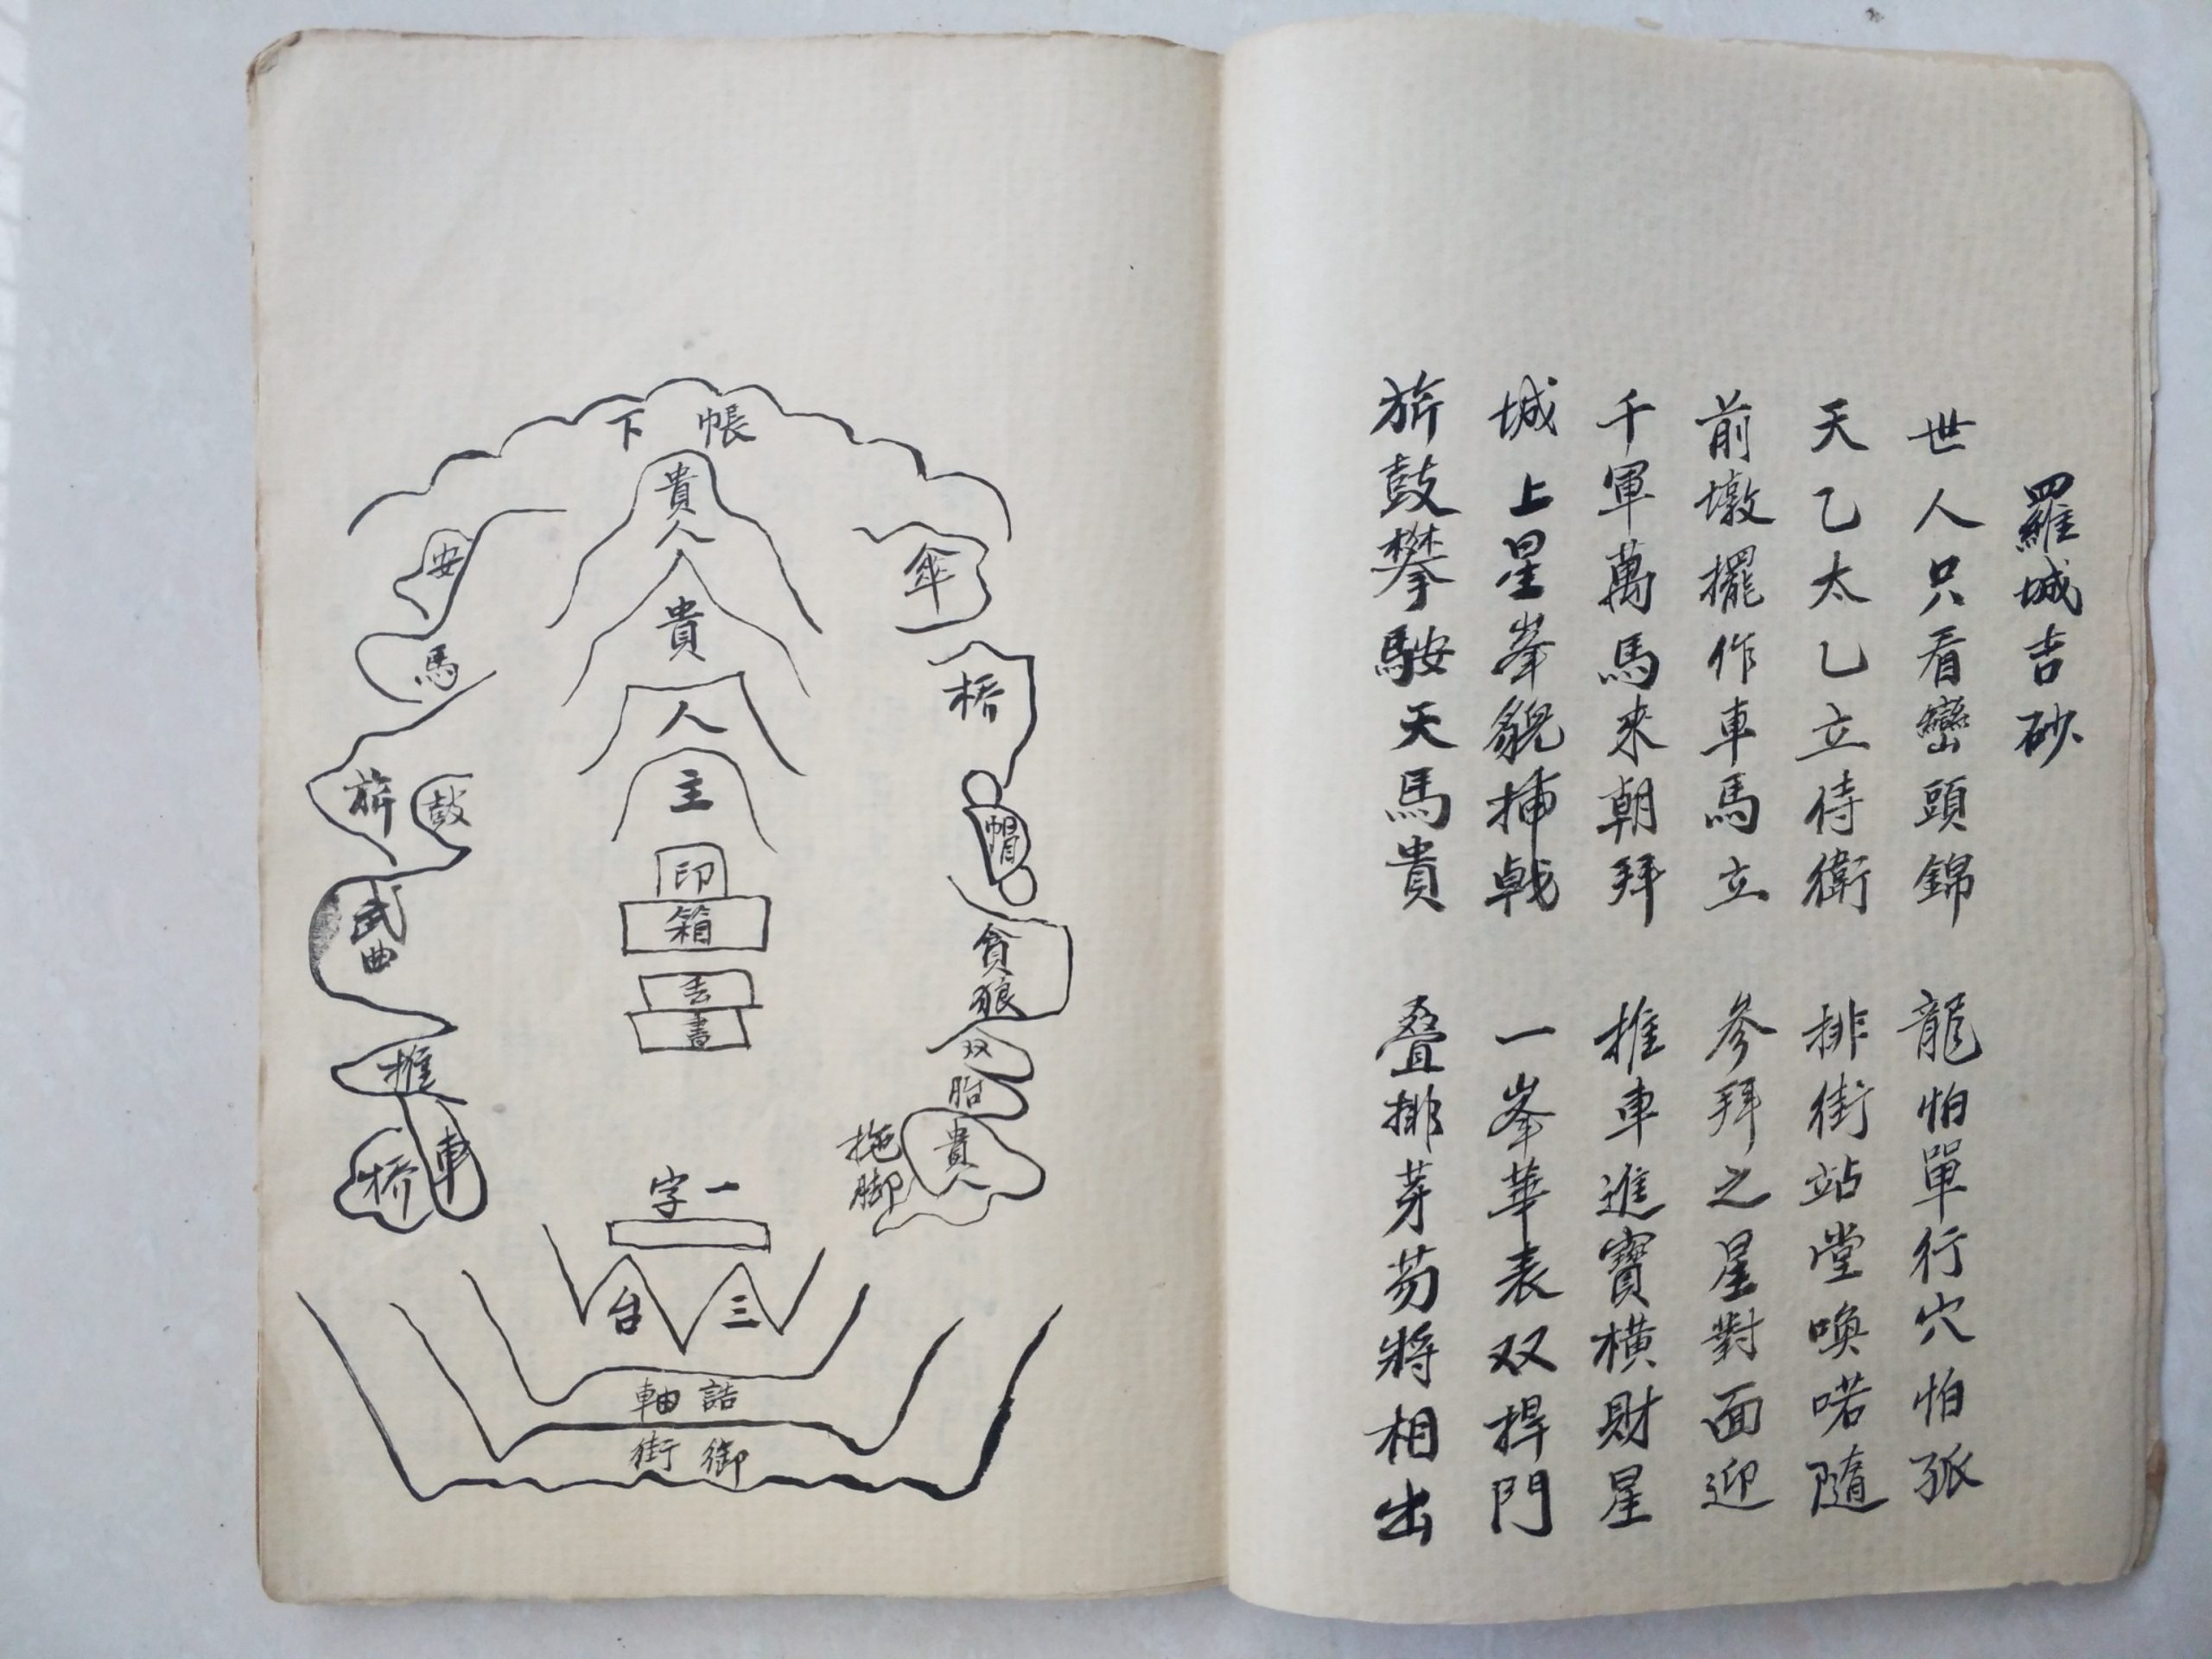 羅城吉砂
世人只看巒頭錦 龍怕單行穴怕孤
天乙太乙立侍衛 排街站堂喚喏隨
前墩擺作車馬立 參拜之星對面迎
千軍萬馬來朝拜 推車進寶横財星
城上星峯貌挿戟 一峯華表双捍門
旂鼓攀鞍天馬貴 叠排芽笏將相出
帳下
貴人
貴人
主
印
箱
書
傘
桥
帽
貪狼
双
胎
貴人
拖脚
安
馬
旂
鼓
武曲
推
車
桥
一字
三台
誥軸
御街